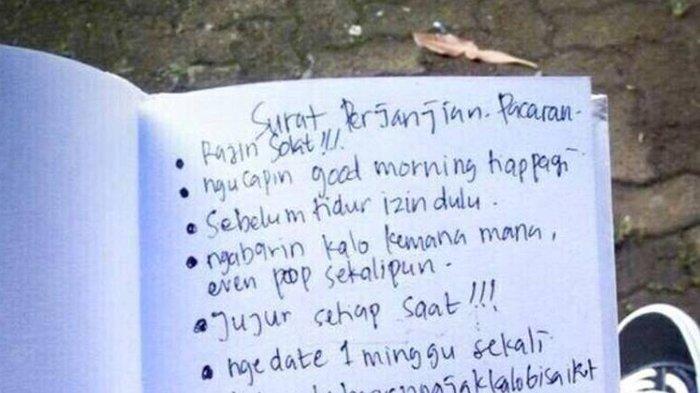 Surat Perjanjian Pacaran.
• Rajin Solat!!!
• ngucapin good morning tiap pagi
• Sebelum tidur izin dulu.
• ngabarin kalo kemana mana,
even poop sekalipun.
• Jujur setiap saat!!!
• ngedate 1 minggu sekali
ngajak kalo bisa ikut